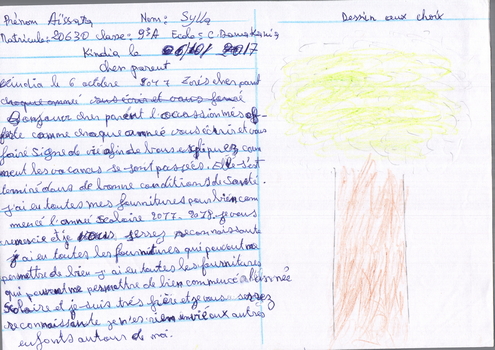 Prénom Aïssata Nom: Sylla Dessin aux choix
Matricule: 20630 classe: 9ᵉA Ecole: C.
Kindia le 06/10/ 2017
cher parent
Kindia le 6 octobre 2017 cher
chaque année vous écrir et vous
Bonjouer cher parent l'ocassion
comme chaque année vous écrir et vous
faire Signe de vie afin de vous expliquez com
ment les vacances se sont passées. Elle s'est
terminé dans de bonne conditions de Santé.
j'ai eu toutes mes fournitures pour bien com
mencé l'année Scolaire 2017-2018. je vous
remercie et je vous serez reconnaissante
j'ai eu toutes les fournitures qui
permettre de bien j'ai eu toutes les fournitures
qui permettre de bien commencé l'année
Scolaire et je suis très fière et je vous serez
reconnaissante je n'es rien envié aux autres
enfants autour de moi.